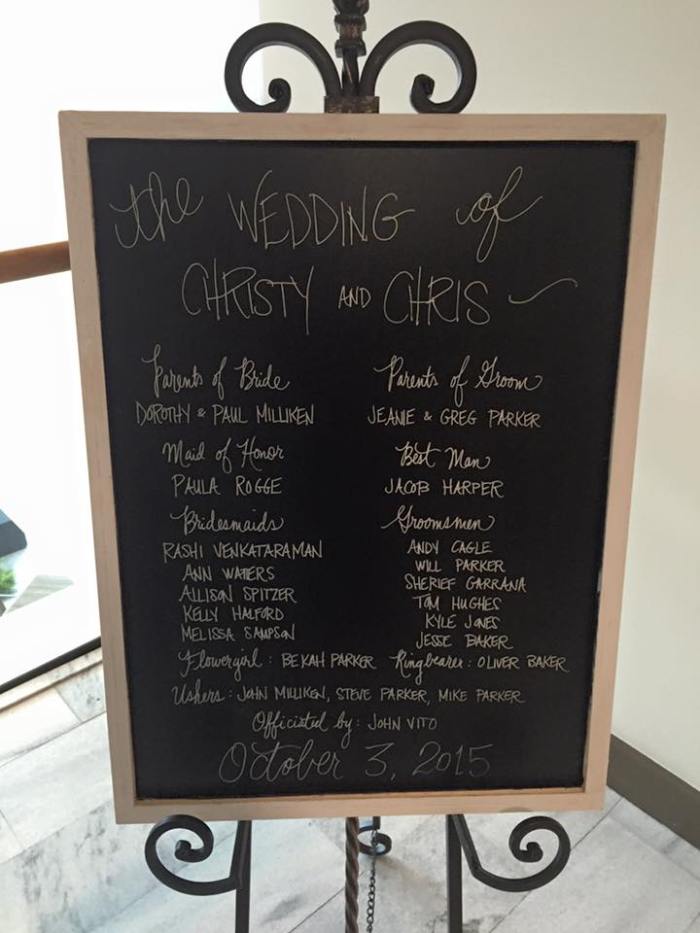 the WEDDING of
CHRISTY AND CHRIS
Parents of Bride
DOROTHY & PAUL MILLIKEN
Maid of Honor
PAULA ROGGE
Bridesmaids
RASHI VENKATARAMAN
ANN WATERS
ALLISON SPITZER
KELLY HALFORD
MELISSA SAMPSON
Parents of Groom
JEANIE & GREG PARKER
Best Man
JACOB HARPER
Groomsmen
ANDY CAGLE
WILL PARKER
SHERIEF GARRANA
TOM HUGHES
KYLE JONES
JESSE BAKER
Flowergirl : BEKAH PARKER
Ringbearer : OLIVER BAKER
Ushers : JOHN MILLIKEN, STEVE PARKER, MIKE PARKER
Officiated by : JOHN VITO
October 3, 2015